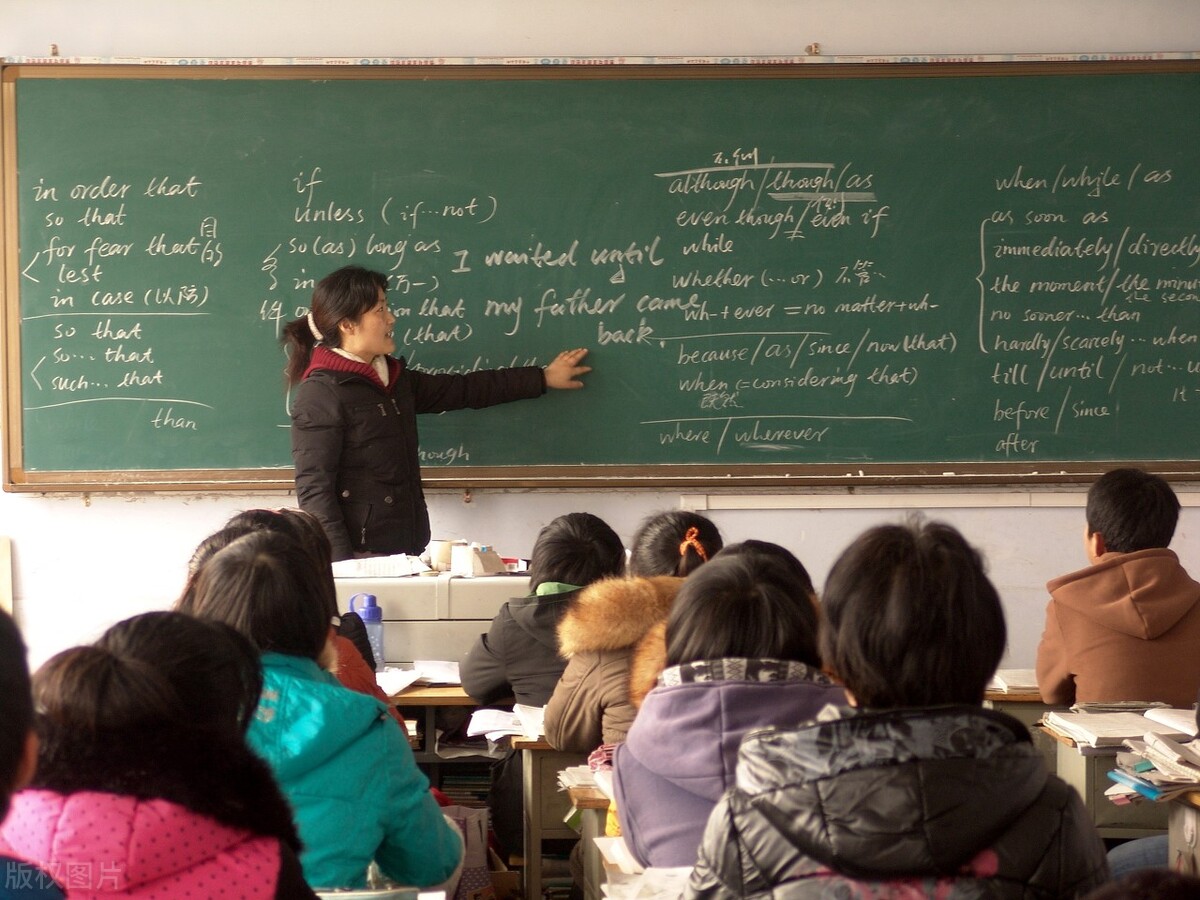 in order that
so that
for fear that
目的
lest
in case (以防)
so that
so... that
such... that
than
if
unless (if...not)
so (as) long as
in
(万一)
条件
on
ion that
(that)
though
I waited until
my father came
back.
although/though/as
even though/even if
while
whether (...or)
wh-+ever = no matter+wh-
because/as/since/now(that)
when (=considering that)
既然
where/wherever
when/while/as
as soon as
immediately/directly
the moment/the minu
the secon
no sooner... than
hardly/scarcely... when
till/until/not...u
It
before/since
after
版权图片